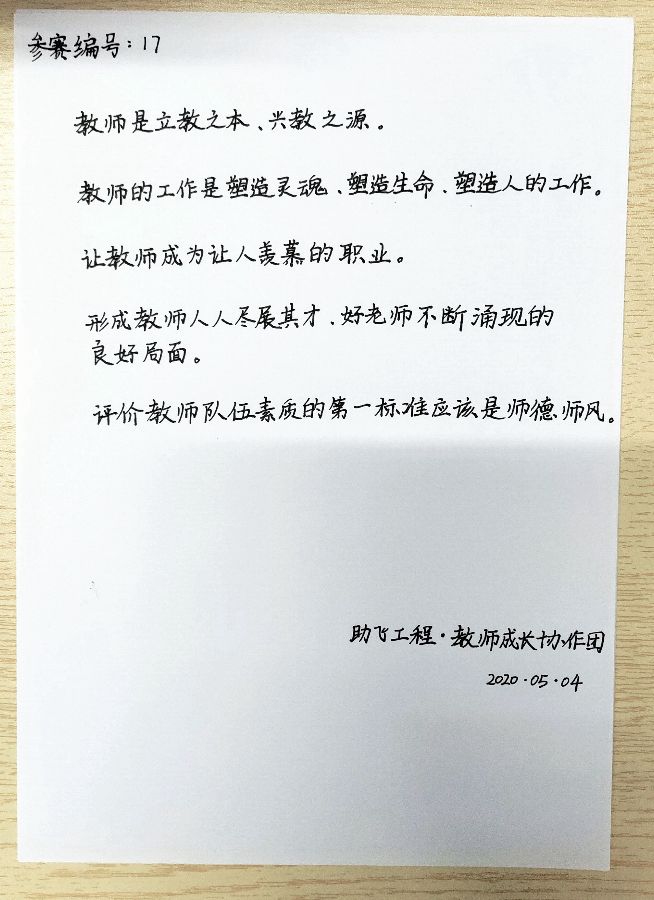 参赛编号：17
教师是立教之本、兴教之源。
教师的工作是塑造灵魂、塑造生命、塑造人的工作。
让教师成为让人羡慕的职业。
形成教师人人尽展其才、好老师不断涌现的
良好局面。
评价教师队伍素质的第一标准应该是师德师风。
助飞工程·教师成长协作团
2020·05·04